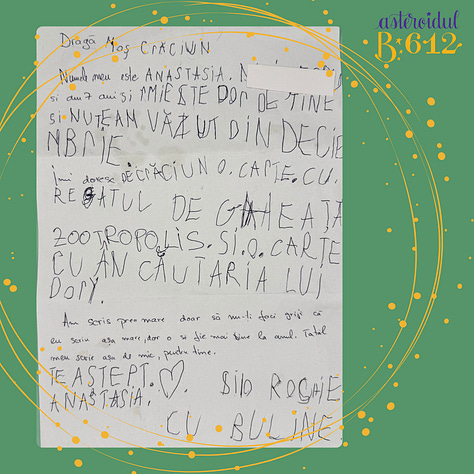 asteroidul
B:612
Dragă Moș CRĂCIUN
Numele meu este ANASTASIA.
și am 7 ani și MIE ESTE DOR DE TINE
ȘI NUTEAM VĂZUT DIN DECIE
MBRIE.
îmi doresc DECRĂCIUN O. CARTE. CU.
REGATUL DE GHEAȚĂ
ZOOTROPOLIS. SI. O. CARTE
CU ÎN CĂUTARIA LUI
DORY.
Am scris prea mare doar să nu-ți faci griji că
eu scriu așa mare, dar o să fie mai bine la anul. Tatăl
meu scrie așa de mic, pentru tine.
TE AȘTEPT.
ANASTASIA.
SI O ROCHIE
CU BULINE